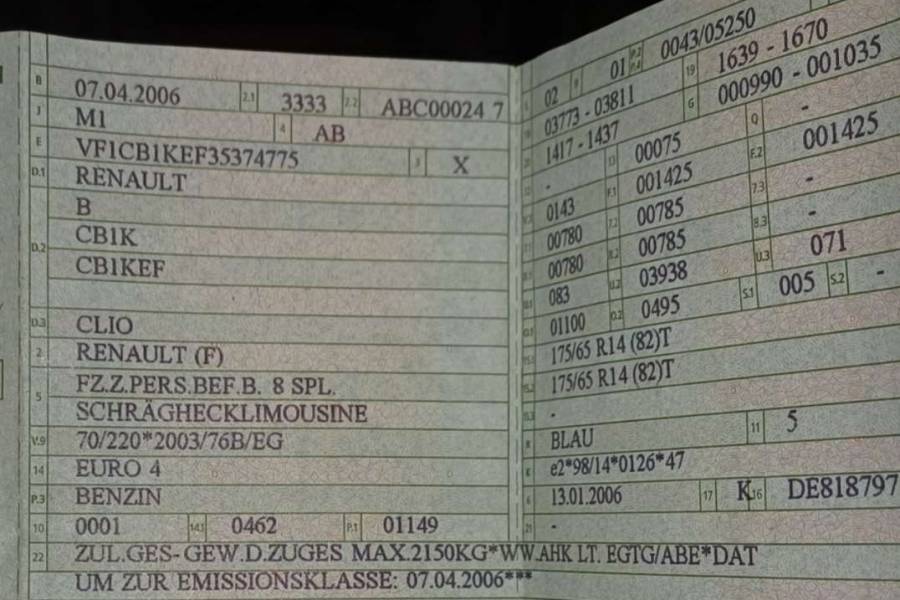 B 07.04.2006 2.1 3333 2.2 ABC00024 7
J M1 4 AB
E VF1CB1KEF35374775 3 X
D.1 RENAULT
B
D.2 CB1K
CB1KEF
D.3 CLIO
2 RENAULT (F)
5 FZ.Z.PERS.BEF.B. 8 SPL.
SCHRÄGHECKLIMOUSINE
V.9 70/220*2003/76B/EG
14 EURO 4
P.3 BENZIN
10 0001 14.1 0462 P.1 01149
22 ZUL.GES-GEW.D.ZUGES MAX.2150KG*WW.AHK LT. EGTG/ABE*DAT
UM ZUR EMISSIONSKLASSE: 07.04.2006***
02 9 01 P.2 P.4 0043/05250
03773 - 03811 19 1639 - 1670
1417 - 1437 G 000990 - 001035
- 13 00075 Q -
0143 F.1 001425 F.2 001425
00780 7.2 00785 7.3 -
00780 00785 8.3 -
083 U.2 03938 U.3 071
01100 O.2 0495 S.1 005 S.2 -
175/65 R14 (82)T
175/65 R14 (82)T
-
R BLAU 11 5
K e2*98/14*0126*47
6 13.01.2006 17 K 16 DE818797
21 -